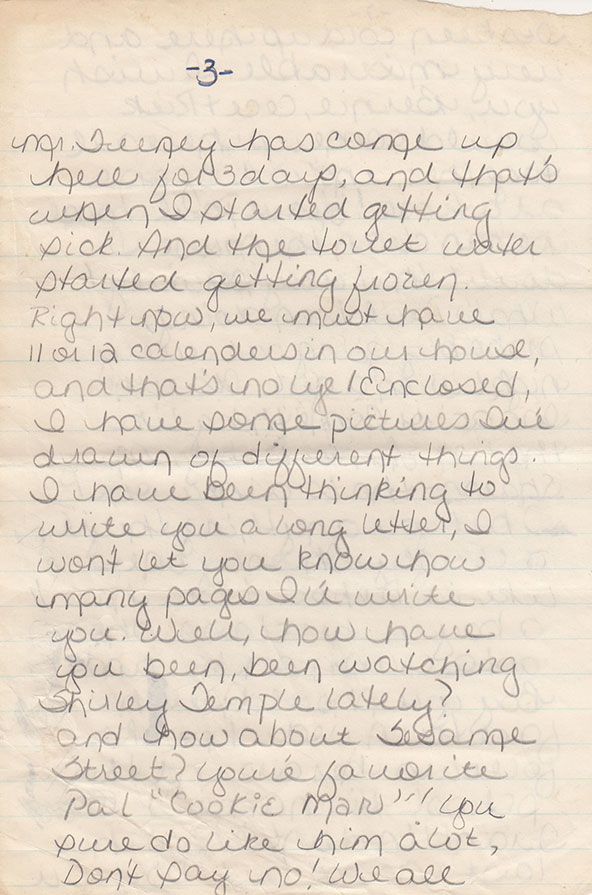 -3-
Mr. Feeney has come up
here for 3 days, and that's
when I started getting
sick. And the toilet water
started getting frozen.
Right now, we must have
11 or 12 calenders in our house,
and that's no lye! Enclosed,
I have some pictures I've
drawn of different things.
I have been thinking to
write you a long letter, I
won't let you know how
many pages I'll write
you. Well, how have
you been, been watching
Shirley Temple lately?
and how about Sesame
Street? you're favorite
Pal "Cookie Man"! You
sure do like him alot,
Don't say no! We all